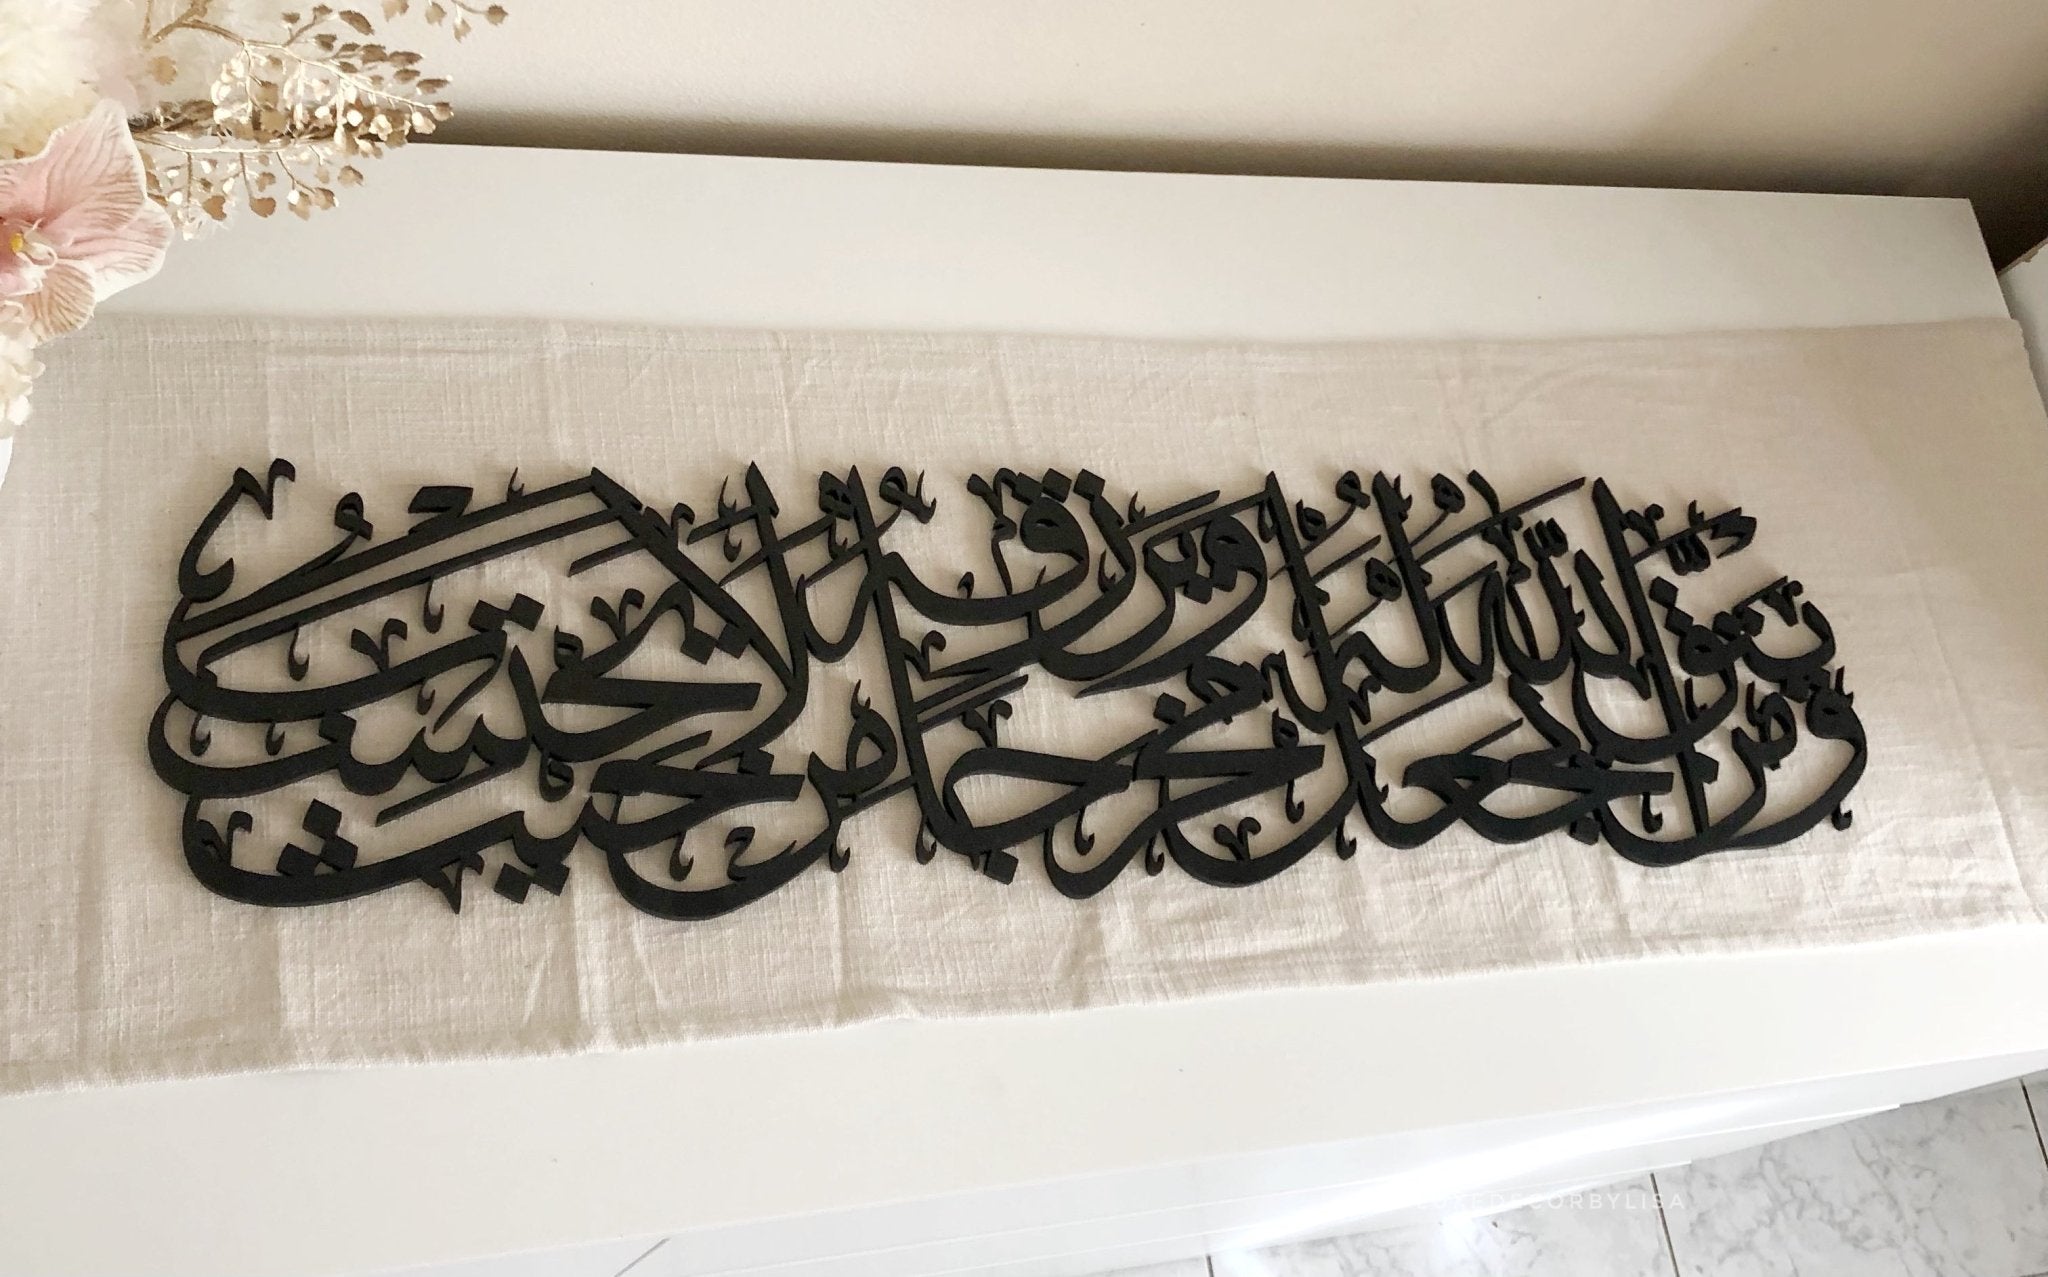 ومن يتق الله يجعل له مخرجا ويرزقه من حيث لا يحتسب
LUXEDECORBYLISA